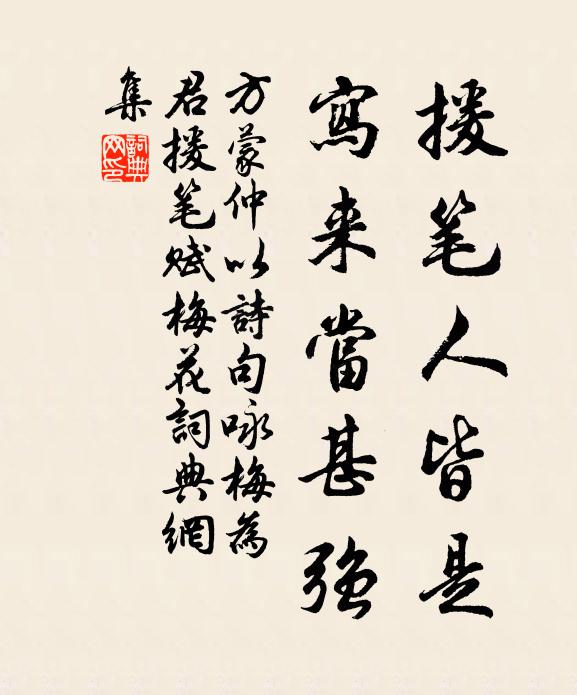 援笔人皆是
寫来當甚强
方蒙仲以詩句咏梅為
君援笔赋梅花詞典網
集
詞典網印